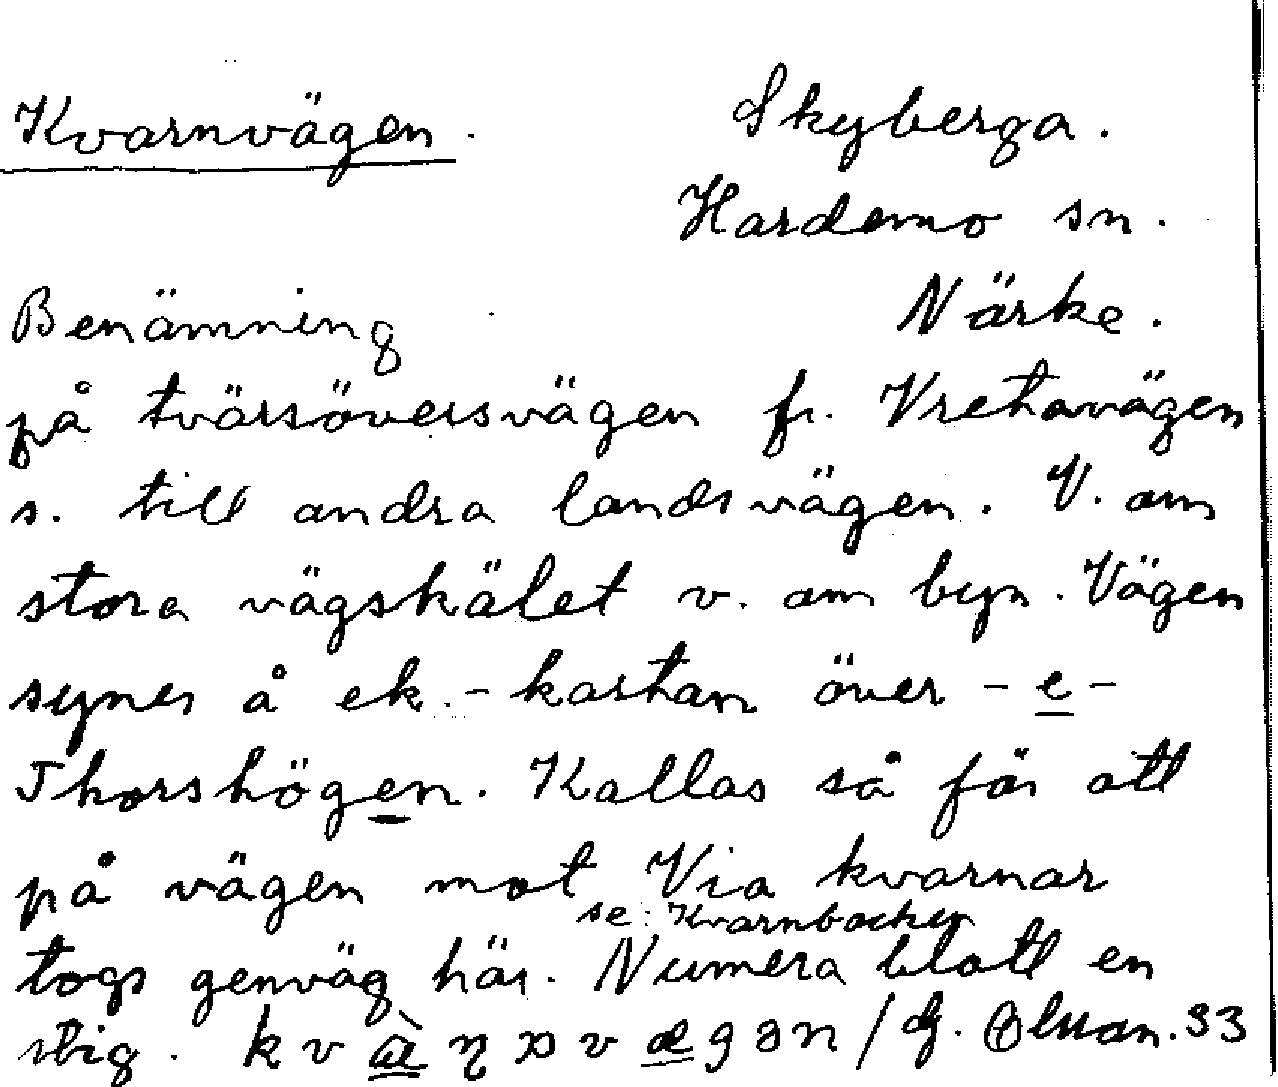 Kvarnvägen. Skyberga.
Hardemo sn.
Benämning Närke.
på tvärsöversvägen fr. Vretavägen
s. till andra landsvägen. V. om
stora vägskälet v. om byn. Vägen
synes å ek.-kartan över - e -
Thorshögen. Kallas så för att
på vägen mot Via kvarnar
se: Kvarnbacken
togs genväg här. Numera blott en
stig.